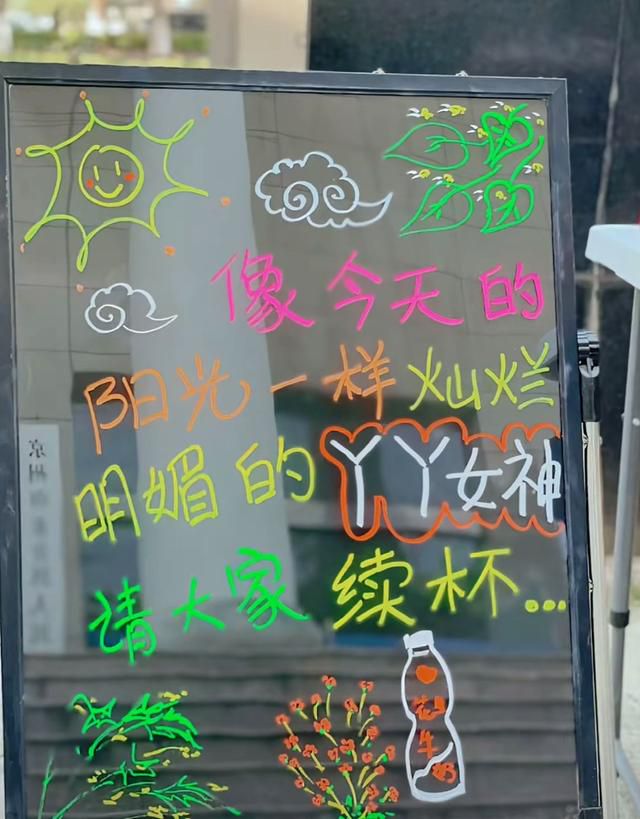 像今天的
阳光一样灿烂
明媚的丫丫女神
请大家续杯...
花生牛奶